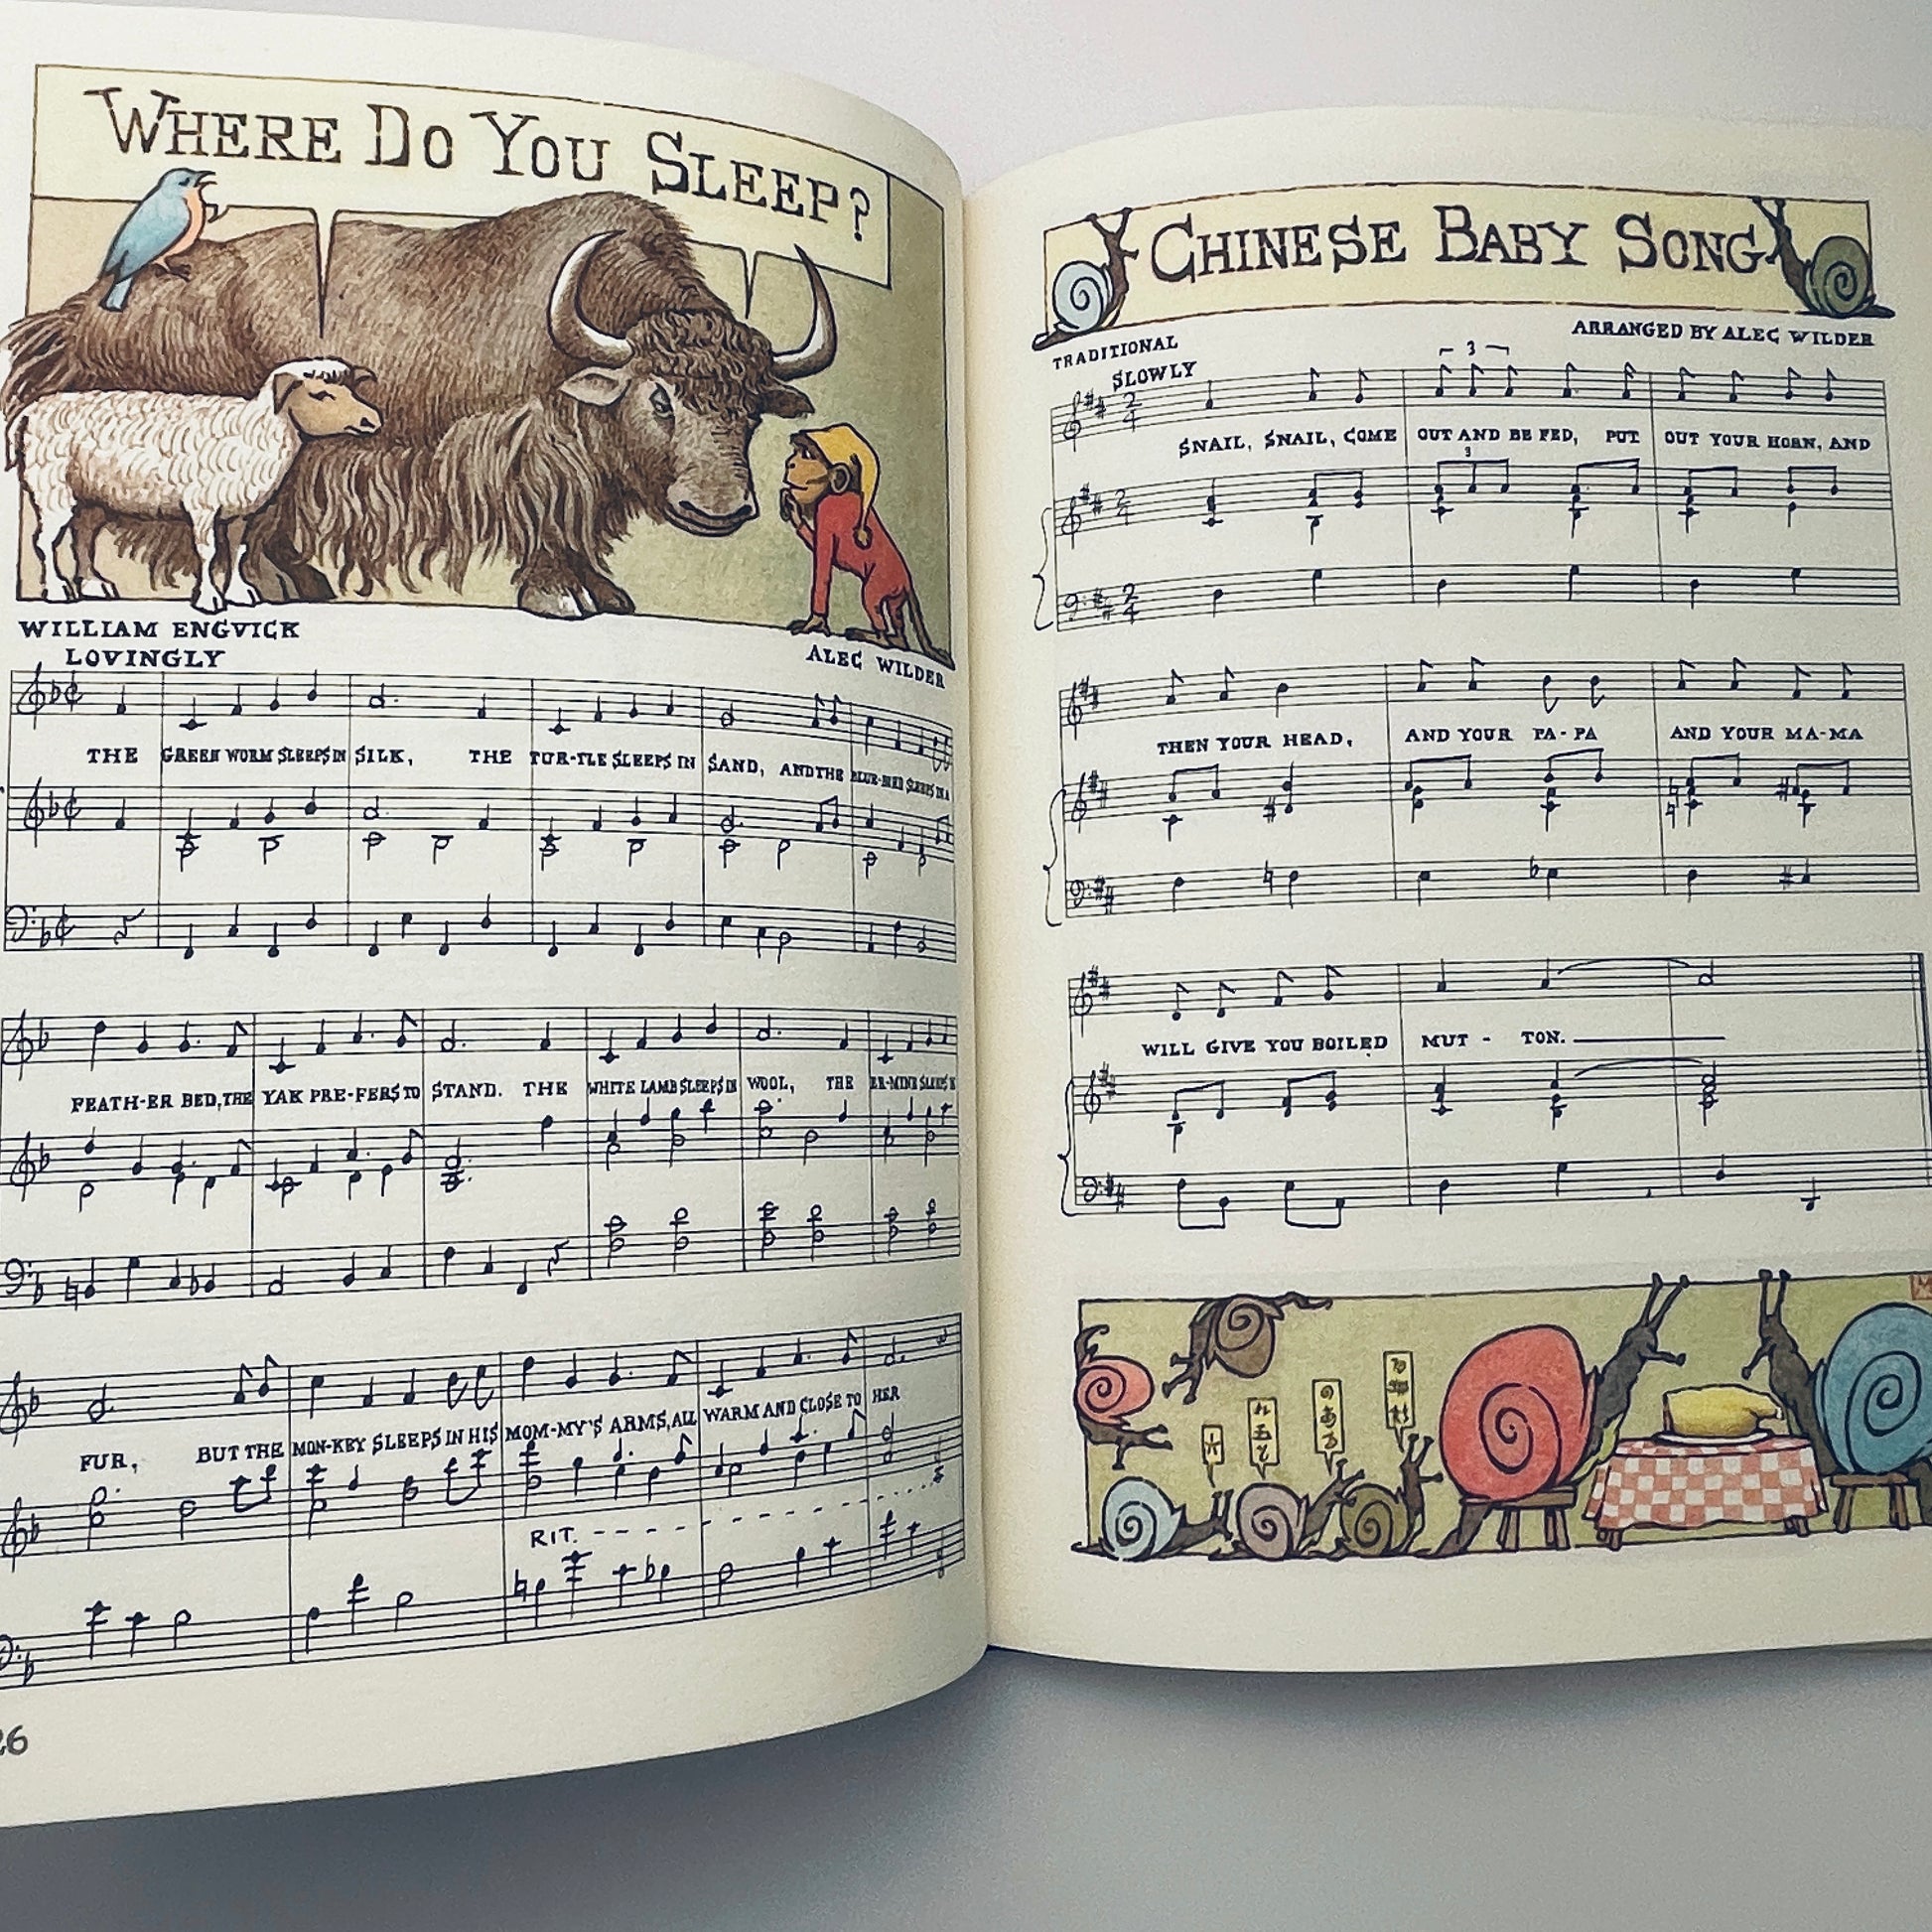 WHERE DO YOU SLEEP?
WILLIAM ENGVICK
LOVINGLY
ALEC WILDER
THE GREEN WORM SLEEPS IN SILK, THE TUR-TLE SLEEPS IN SAND, AND THE BLUE-BIRD SLEEPS IN A
FEATH-ER BED, THE YAK PRE-FERS TO STAND. THE WHITE LAMB SLEEPS IN WOOL, THE ER-MINE SLEEPS IN
FUR, BUT THE MON-KEY SLEEPS IN HIS MOM-MY'S ARMS, ALL WARM AND CLOSE TO HER
RIT.
26
CHINESE BABY SONG
TRADITIONAL
ARRANGED BY ALEC WILDER
SLOWLY
3
SNAIL, SNAIL, COME OUT AND BE FED, PUT OUT YOUR HORN, AND
3
THEN YOUR HEAD, AND YOUR PA-PA AND YOUR MA-MA
WILL GIVE YOU BOILED MUT - TON.